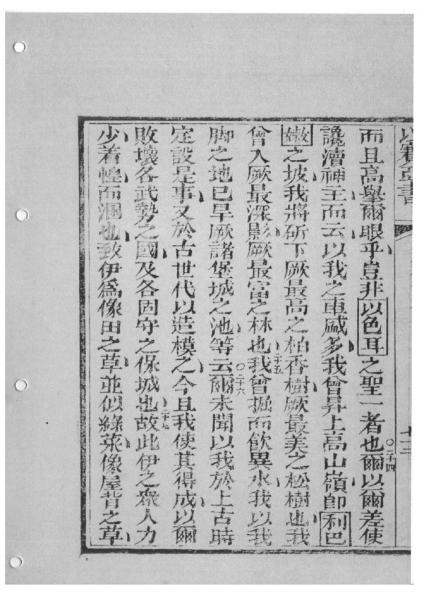 以賽亞書
而且高舉爾眼乎豈非以色耳之聖一者也爾以爾差使
讒瀆神主而云以我之車咸多我曾昇上高山嶺即利巴
嫩之坡我將斫下厥最高之柏香樹厥最美之松樹也我
曾入厥最深影厥最富之林也我曾掘而飲異水我以我
脚之地已旱厥諸堡城之池等云爾未聞以我於上古時
定設是事又於古世代以造模之今且我使其得成以爾
敗壞各武勢之國及各固守之保城也故此伊之衆人力
少着惶而涠也致伊為像田之草並似綠菜像屋背之草
○二十四
○二十五
○二十六
○二十七